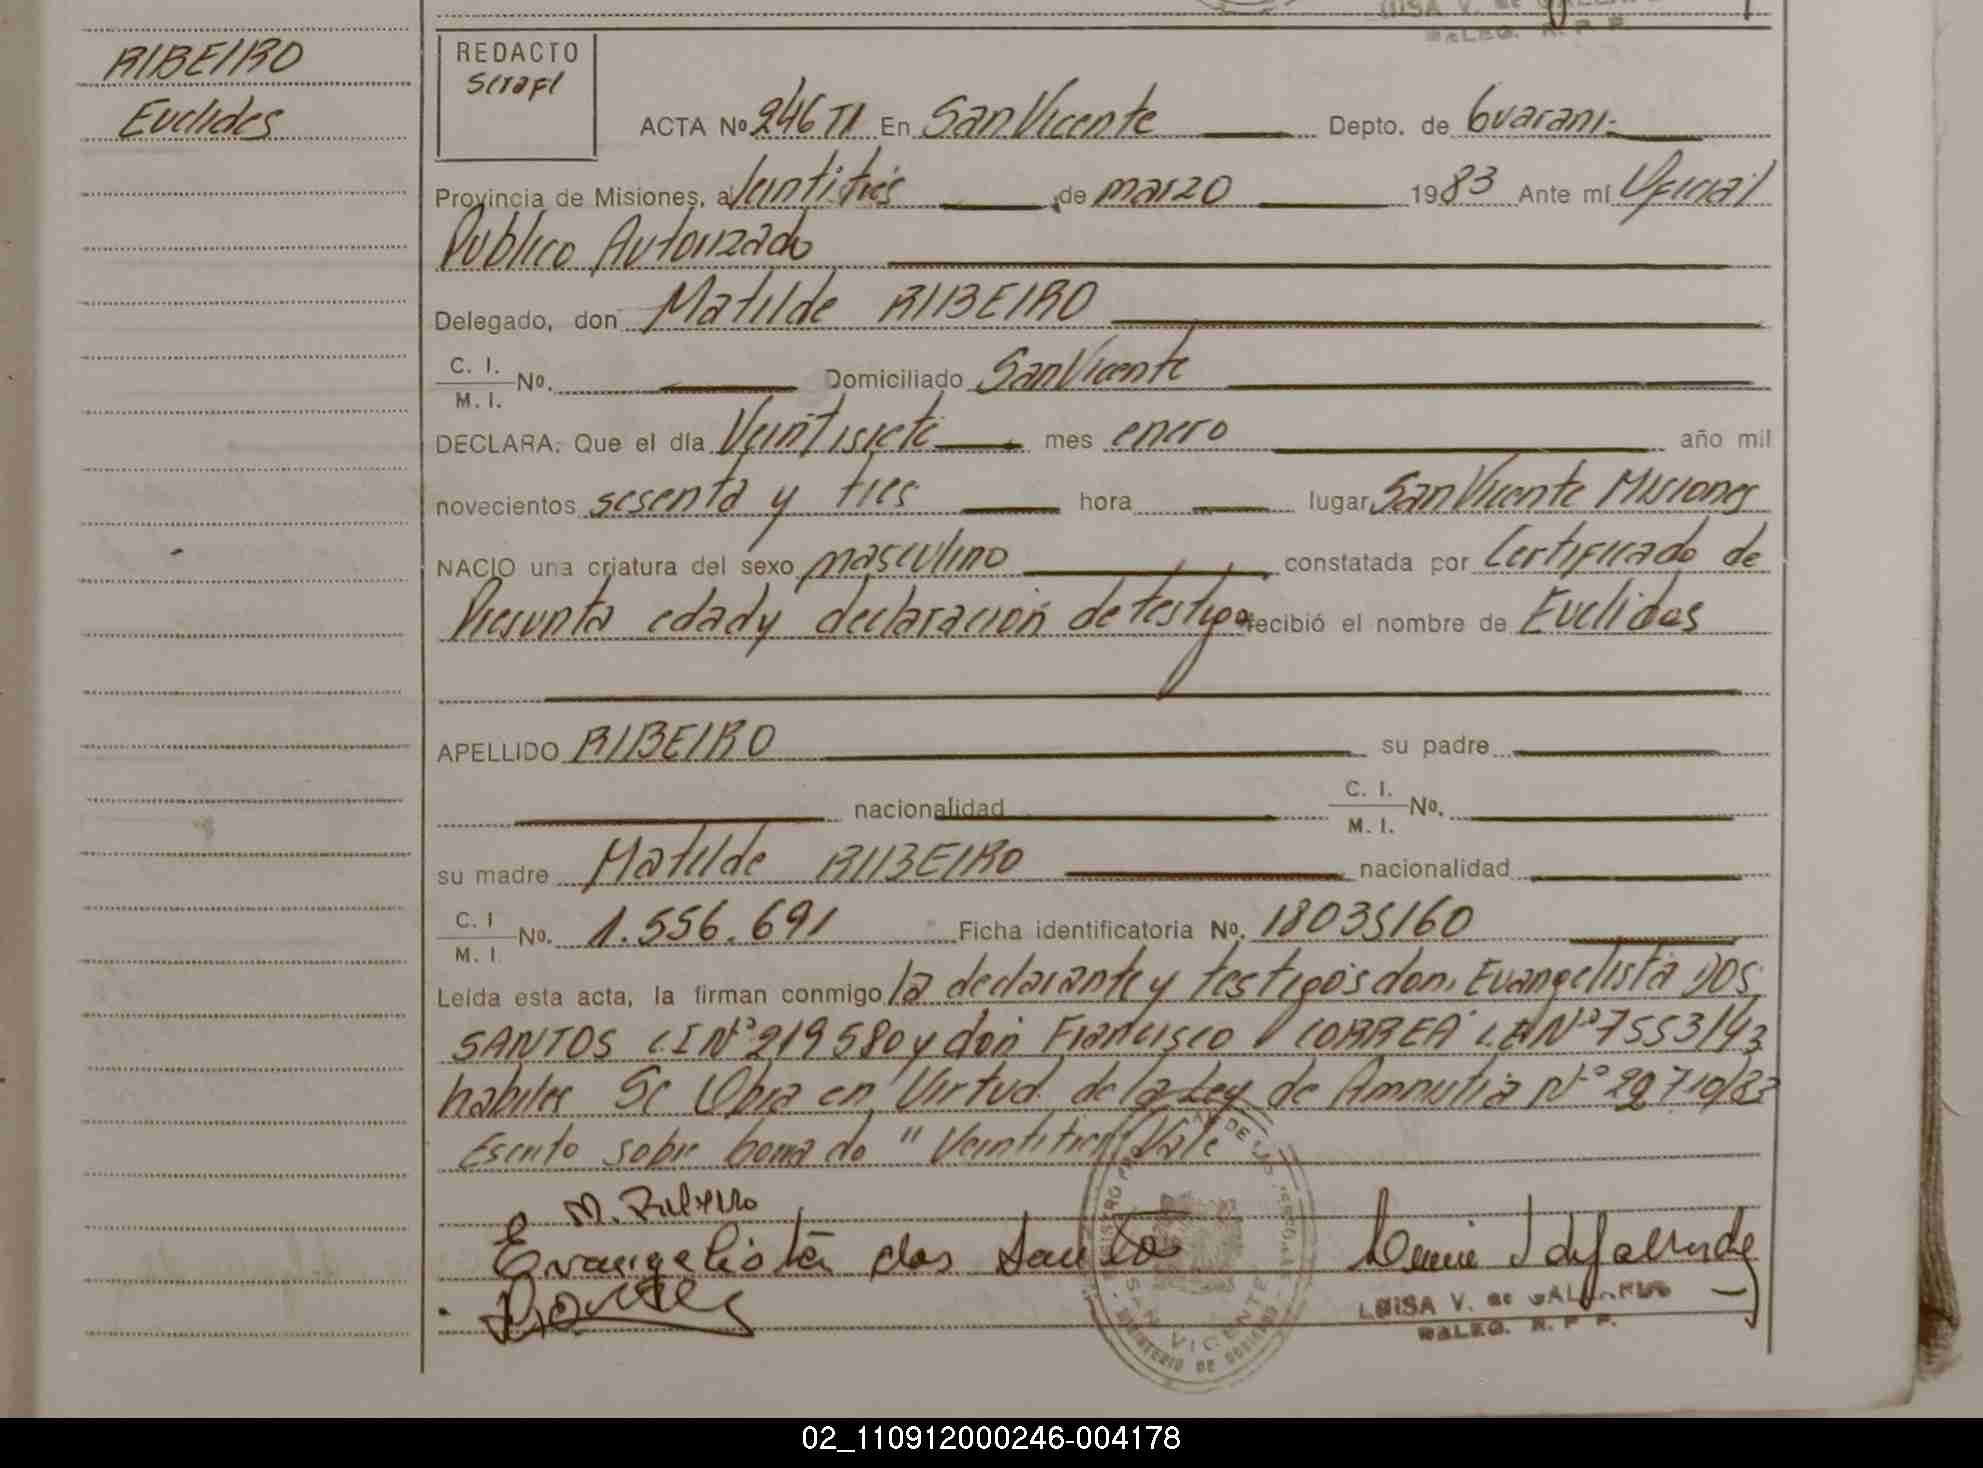 RIBEIRO
Euclides
REDACTO
ACTA Nº 246 TI En San Vicente Depto. de Guarani
Provincia de Misiones, a Veintitrés de marzo 1983 Ante mí Oficial
Publico Autorizado
Delegado, don Matilde RIBEIRO
C. I.
M. I. No. Domiciliado San Vicente
DECLARA: Que el día Veintisiete mes enero año mil
novecientos sesenta y tres hora lugar San Vicente Misiones
NACIO una criatura del sexo masculino constatada por Certificado de
Presunta edad y declaración de testigos recibió el nombre de Euclides
APELLIDO RIBEIRO su padre
nacionalidad C. I.
M. I. No.
su madre Matilde RIBEIRO nacionalidad
C. I
M. I. No. 1.556.691 Ficha identificatoria No. 18035160
Leída esta acta, la firman conmigo la declarante y testigos don. Evangelista DOS
SANTOS CI Nº 219580 y don Francisco CORREA Nº 7553143
habiles Se Obra en Virtud de la Ley de Amnistia Nº
Escrito sobre borrado "Veintitres" Vale
M. Ribeiro
Evangelista dos Santos
SAN VICENTE
MINISTERIO DE GOBIERNO
LUISA V. de
DELEG. R. P. P.
02_110912000246-004178